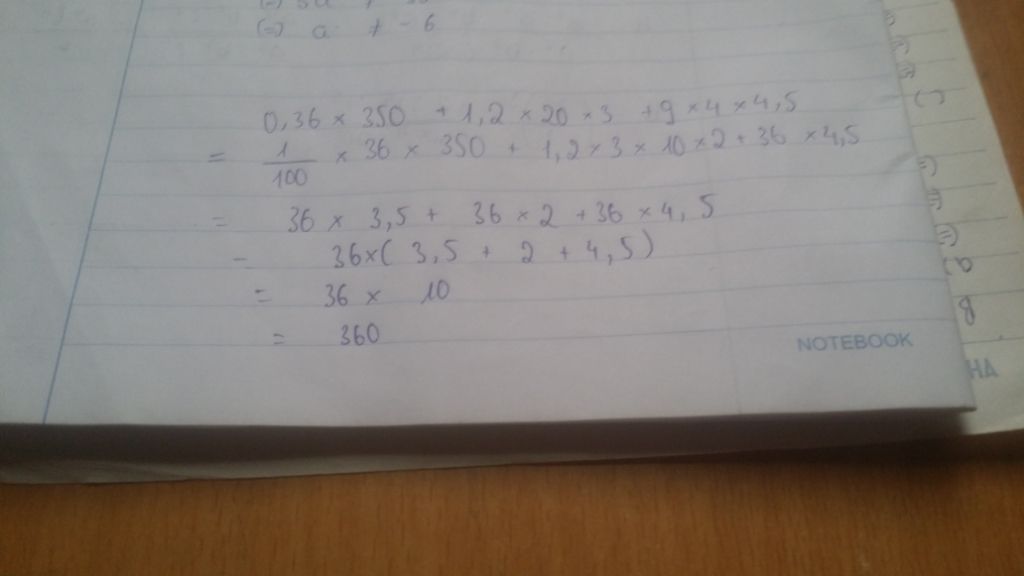 (=) a ≠ - 6
0,36 × 350 + 1,2 × 20 × 3 + 9 × 4 × 4,5
= 1/100 × 36 × 350 + 1,2 × 3 × 10 × 2 + 36 × 4,5
= 36 × 3,5 + 36 × 2 + 36 × 4,5
= 36×( 3,5 + 2 + 4,5)
= 36 × 10
= 360
NOTEBOOK
HA